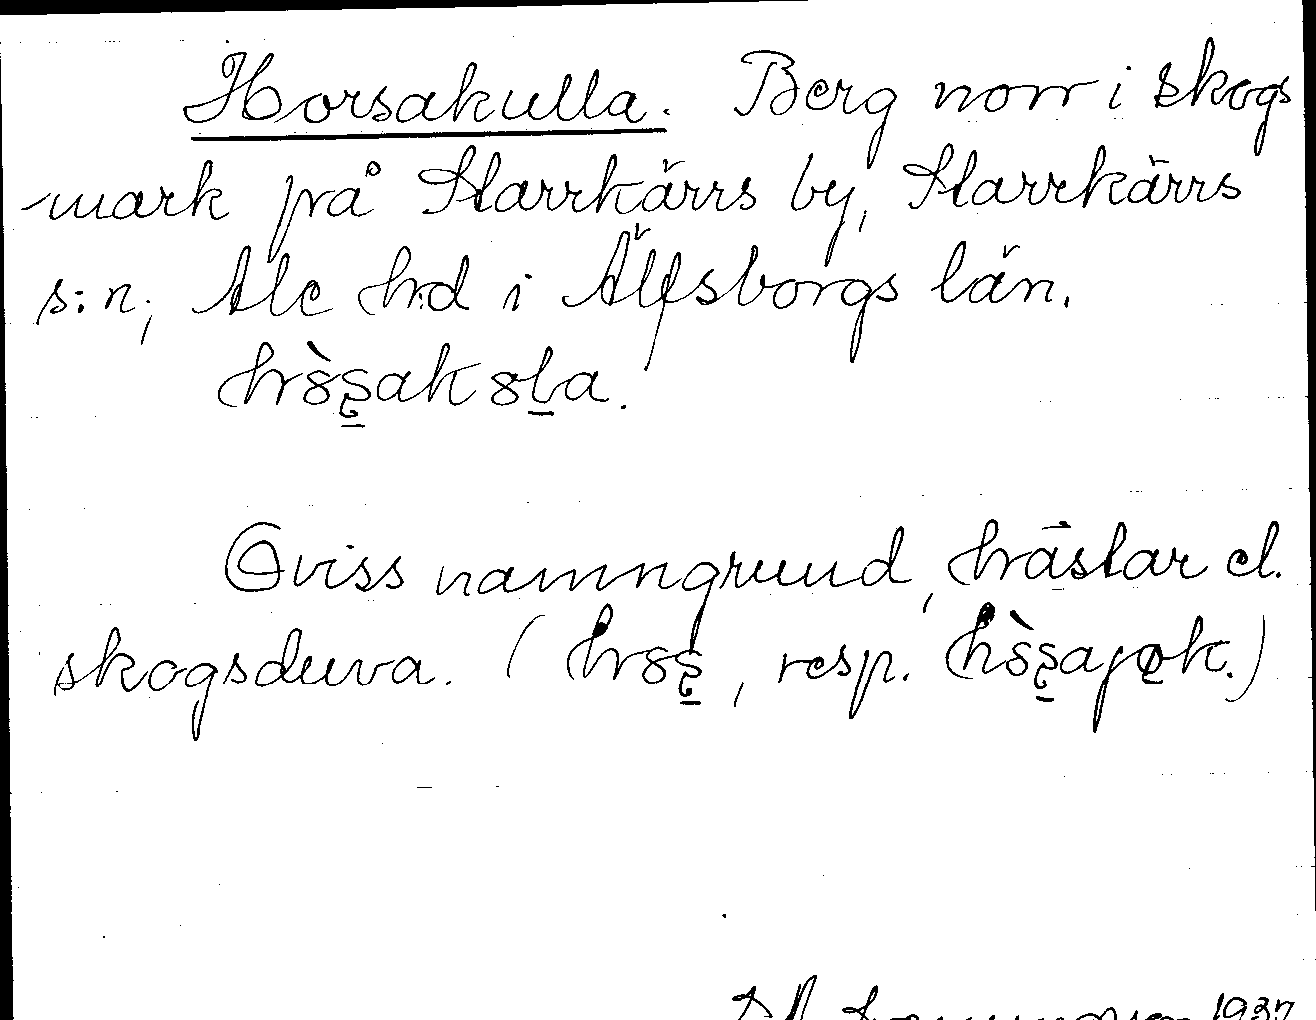 Horsakulla. Berg norr i skogs
mark på Starrkärrs by, Starrkärrs
s:n, Ale h:d i Älfsborgs län.

Oviss namngrund, hästar el.
skogsduva. (resp.)
1937